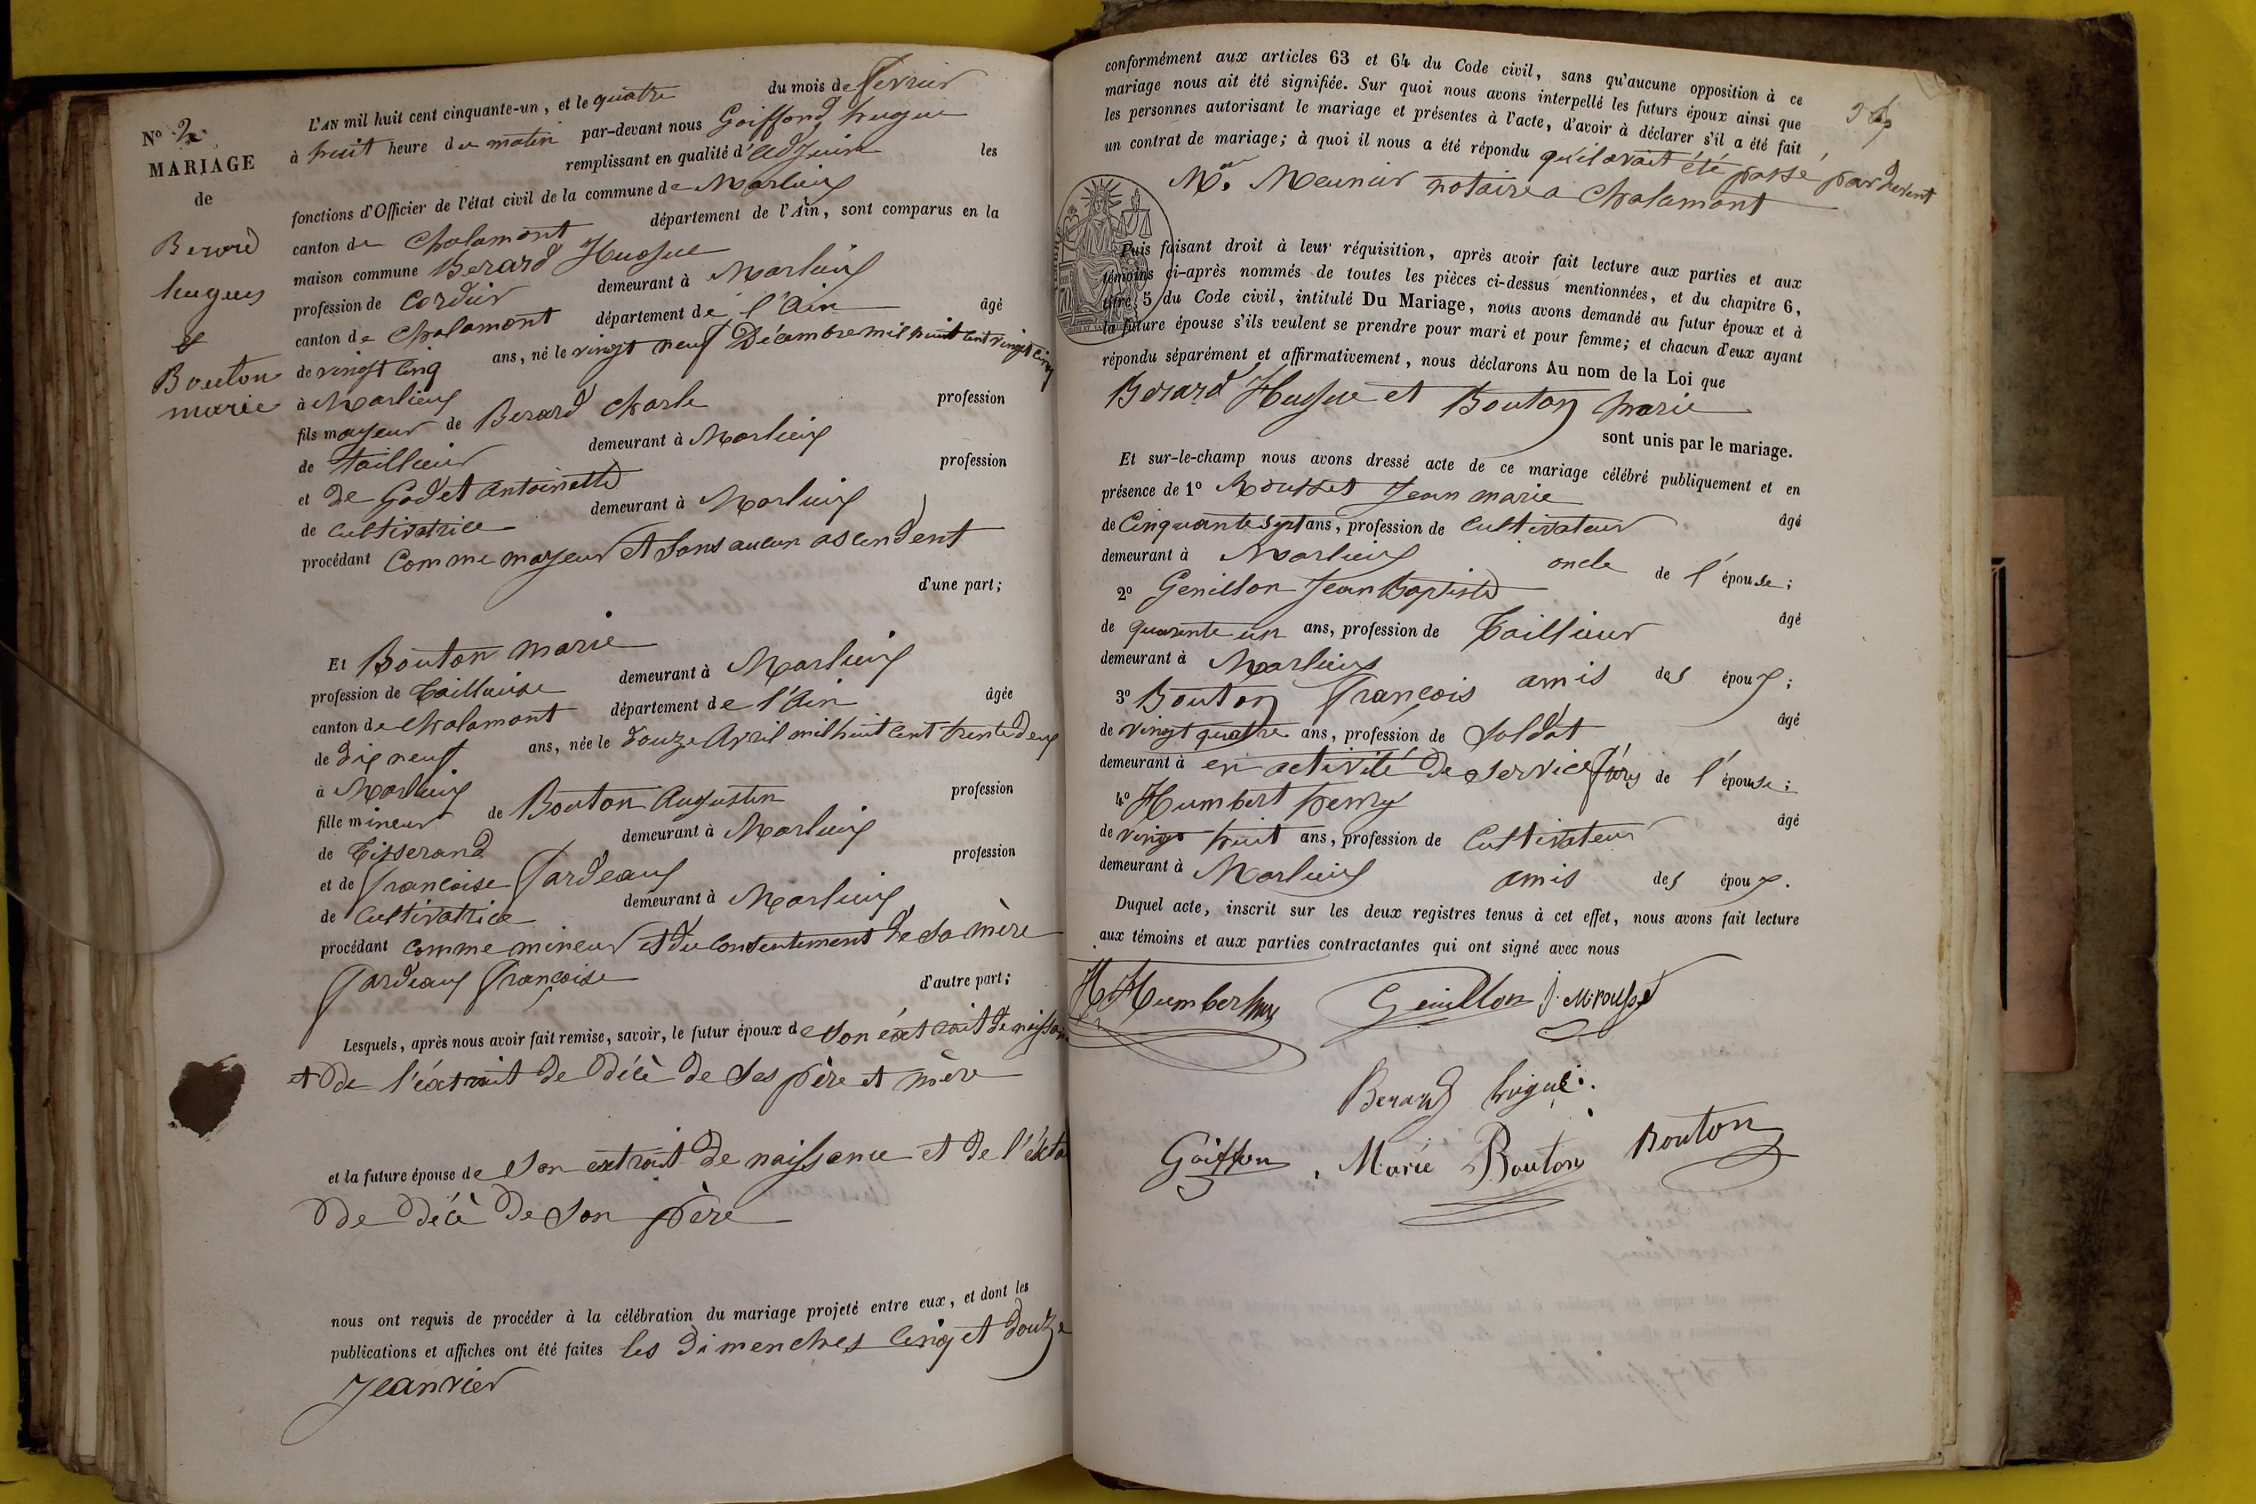 N° 2
MARIAGE
de
Berard
hugues
et
Bouton
marie
L'AN mil huit cent cinquante-un, et le quatre du mois de fevrier
à huit heure du matin par-devant nous Goiffond hugue
remplissant en qualité d'adjoin les
fonctions d'Officier de l'état civil de la commune de Marlieux
canton de Chalamont département de l'Ain, sont comparus en la
maison commune Berard Hugue
profession de Cordier demeurant à Marlieux
canton de Chalamont département de l'ain âgé
de vingt cinq ans, né le vingt neuf Décembre mil huit cent vingt cinq
à Marlieux
fils mayeur de Berard charle profession
de taillieur demeurant à Marlieux
et de Godet antoinette profession
de cultivatrice demeurant à Marlieux
procédant Comme mayeur et sans aucun ascendent
d'une part;
Et Bouton marie
profession de tailleuse demeurant à Marlieux
canton de chalamont département de l'ain âgée
de dix neuf ans, née le douze Avril mil huit cent trente deux
à Marlieux
fille mineur de Bouton Augustin profession
de Tisserand demeurant à Marlieux
et de francoise Jardeaux profession
de Cultivatrice demeurant à Marlieux
procédant comme mineur et du consentement de sa mère
Jardeaux françoise d'autre part;
Lesquels, après nous avoir fait remise, savoir, le futur époux de son éxtrait de naissan
et de l'éxtrait de décè de ses père et mère
et la future épouse de son extrait de naissance et de l'éxtra
de décè de son père
nous ont requis de procéder à la célébration du mariage projeté entre eux, et dont les
publications et affiches ont été faites les dimenches cinq et douze
Jeanvier
conformément aux articles 63 et 64 du Code civil, sans qu'aucune opposition à ce
mariage nous ait été signifiée. Sur quoi nous avons interpellé les futurs époux ainsi que
les personnes autorisant le mariage et présentes à l'acte, d'avoir à déclarer s'il a été fait
un contrat de mariage; à quoi il nous a été répondu qu'il avait été passé pardevent
Me. Meunier notaire a Chalamont
Puis faisant droit à leur réquisition, après avoir fait lecture aux parties et aux
témoins ci-après nommés de toutes les pièces ci-dessus mentionnées, et du chapitre 6,
titre 5 du Code civil, intitulé Du Mariage, nous avons demandé au futur époux et à
la future épouse s'ils veulent se prendre pour mari et pour femme; et chacun d'eux ayant
répondu séparément et affirmativement, nous déclarons Au nom de la Loi que
Berard Hugue et Bouton marie
sont unis par le mariage.
Et sur-le-champ nous avons dressé acte de ce mariage célébré publiquement et en
présence de 1° Rousset Jean marie âgé
de Cinquante sept ans, profession de Cultivateur
demeurant à Marlieux oncle de l'épouse;
2° Genillon Jean Baptiste âgé
de quarente un ans, profession de Taillieur
demeurant à Marlieux amis des époux;
3° Bouton François âgé
de vingt quatre ans, profession de Soldat
demeurant à en activité de service de l'épouse;
4° Humbert henry âgé
de vingt huit ans, profession de Cultivateur
demeurant à Marlieux amis des époux.
Duquel acte, inscrit sur les deux registres tenus à cet effet, nous avons fait lecture
aux témoins et aux parties contractantes qui ont signé avec nous
H Humbert Genillon J. M. rousset
Berard hugue
Goiffon Marie Bouton Bouton